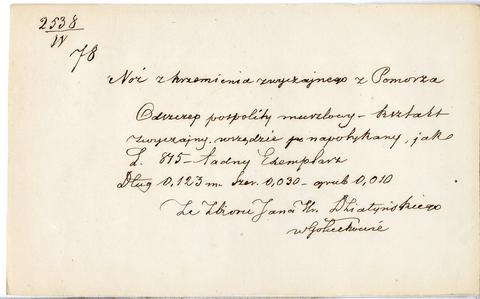 2538
IV
78
Nóż z krzemienia zwyczajnego z Pomorza
Odszczep pospolity muszlowy - kształt
zwyczajny, wszędzie napotykany, jak
L. 875 - ładny Exemplarz
Dług 0,123 m. Szer. 0,030 - grub 0,010
Ze Zbioru Jana Hr. Działyńskiego
w Gołuchowie